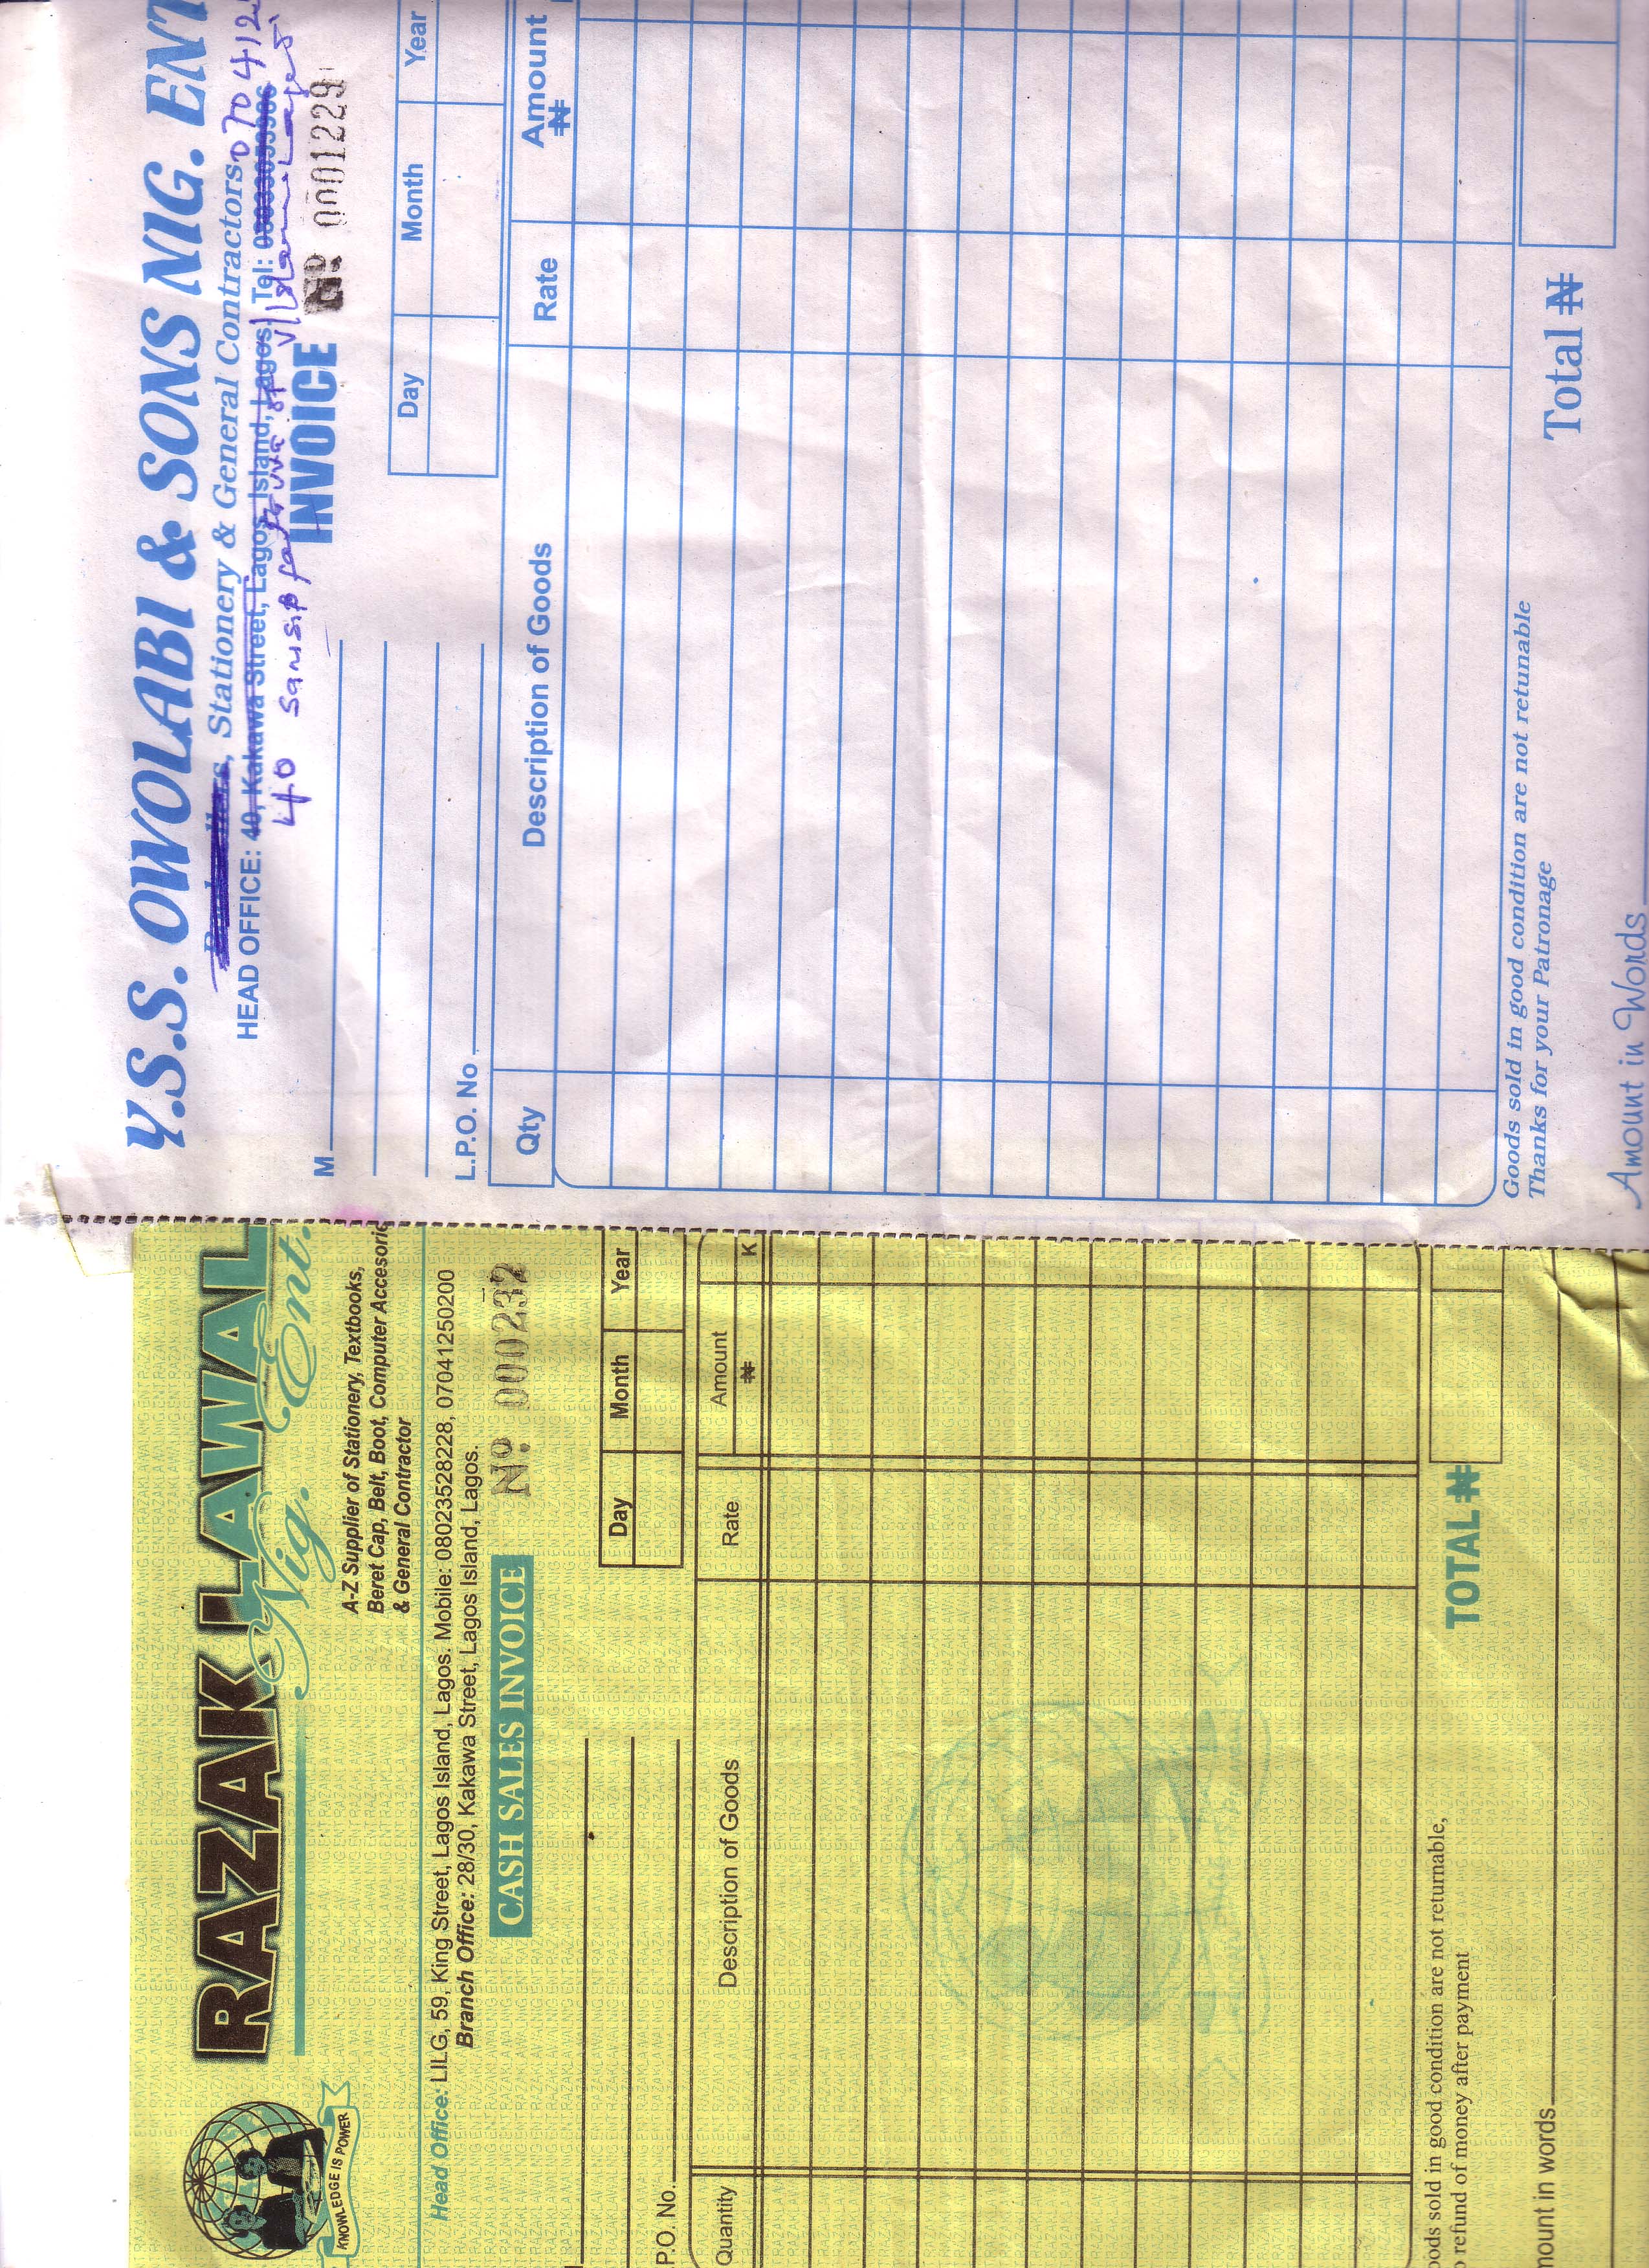 Y.S.S. OWOLABI & SONS NIG. ENT
, Stationery & General Contractors 070 412
HEAD OFFICE: 40, Kakawa Street, Lagos Island, Lagos. Tel:
40
INVOICE
Nº 0001229
M
Day Month Year
L.P.O. No
Qty Description of Goods Rate Amount
₦
Goods sold in good condition are not retunable
Thanks for your Patronage
Total ₦
Amount in Words
RAZAK LAWAL
Nig. Ent.
KNOWLEDGE IS POWER
A-Z Supplier of Stationery, Textbooks,
Beret Cap, Belt, Boot, Computer Accesorie
& General Contractor
Head Office: LILG, 59, King Street, Lagos Island, Lagos. Mobile: 08023528228, 07041250200
Branch Office: 28/30, Kakawa Street, Lagos Island, Lagos.
CASH SALES INVOICE
Nº. 000232
Day Month Year
P.O. No.
Quantity Description of Goods Rate Amount
₦ K
ods sold in good condition are not returnable,
refund of money after payment
TOTAL ₦
mount in words